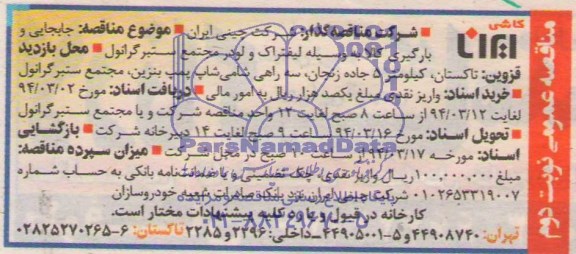 مناقصه عمومی نوبت دوم
کاشی
ایرانا
■ شرکت مناقصه‌گذار: شرکت چینی ایران ■ موضوع مناقصه: جابجایی و
بارگیری کالا به وسیله لیفتراک و لودر مجتمع ستبرگرانول ■ محل بازدید
قزوین: تاکستان، کیلومتر ۵ جاده زنجان، سه راهی شامی‌شاپ پمپ بنزین، مجتمع ستبر گرانول
■ خرید اسناد: واریز نقدی مبلغ یکصد هزار ریال به امور مالی ■ دریافت اسناد: مورخ ۹۴/۰۳/۰۲
لغایت ۹۴/۰۳/۱۲ از ساعت ۸ صبح لغایت ۱۲ واحد مناقصه شرکت و یا مجتمع ستبرگرانول
■ تحویل اسناد: مورخ ۹۴/۰۳/۱۶ ساعت ۹ صبح لغایت ۱۴ دبیرخانه شرکت ■ بازگشایی
اسناد: مورخه ۹۴/۰۳/۱۷ ساعت ۱۰ صبح در محل شرکت ■ میزان سپرده مناقصه:
مبلغ ۱۰۰,۰۰۰,۰۰۰ ریال واریز نقدی، چک تضمینی و یا ضمانتنامه بانکی به حساب شماره
۰۱۰۲۶۵۳۳۱۹۰۰۷ شرکت چینی ایران نزد بانک صادرات شعبه خودروسازان
کارخانه در قبول و یا رد کلیه پیشنهادات مختار است.
تهران: ۴۴۹۰۸۷۴۰ و ۵-۴۴۹۰۵۰۰۱ داخلی: ۲۲۹۶ و ۲۲۸۵ تاکستان: ۶-۰۲۸۲۵۲۷۰۲۶۵
ParsNamadData